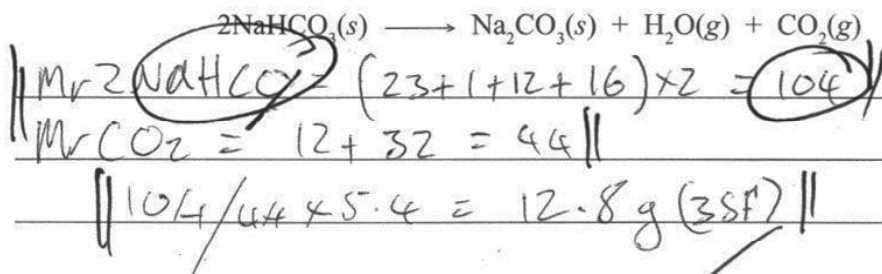 2NaHCO₃(s) ⟶ Na₂CO₃(s) + H₂O(g) + CO₂(g)
Mr 2NaHCO = (23+1+12+16)×2 = 104
MrCO₂ = 12+32 = 44
104/44×5.4 = 12.8g (3SF)